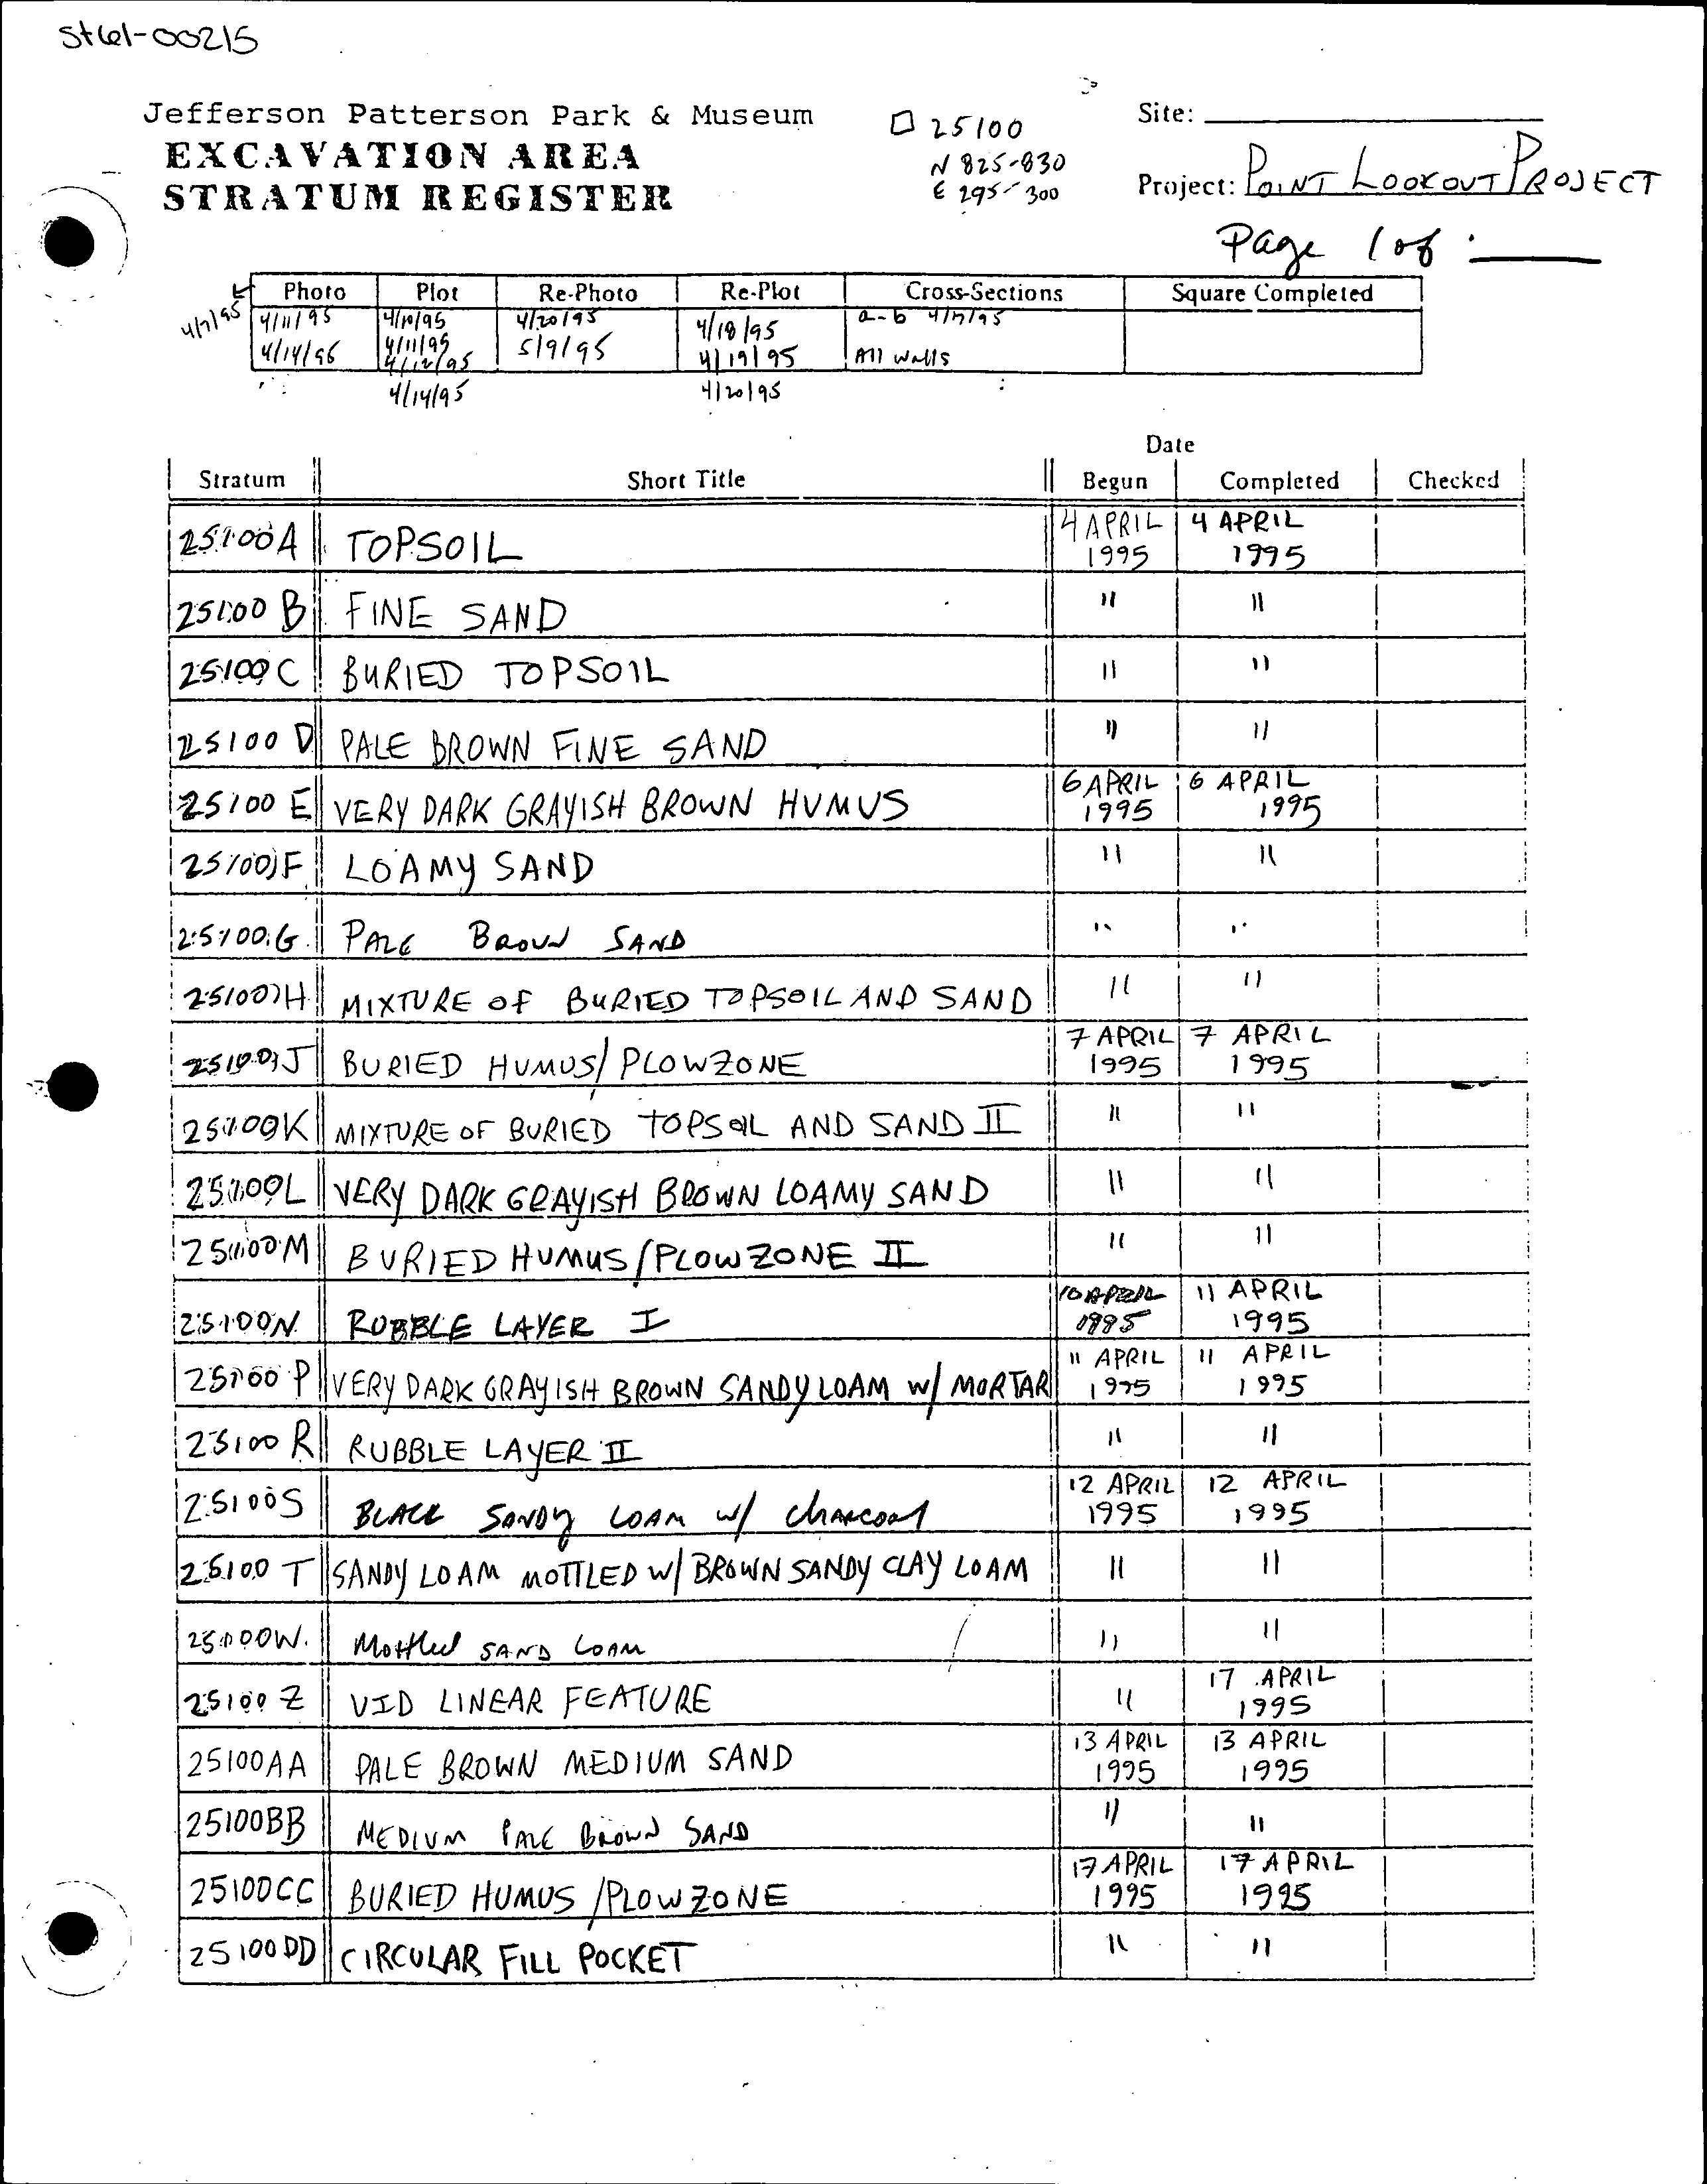 St61-00215
Jefferson Patterson Park & Museum
EXCAVATION AREA
STRATUM REGISTER
□ 25100
N 825-830
E 295-300
Site:
Project: POINT LOOKOUT PROJECT
Page 1 of
Photo Plot Re-Photo Re-Plot Cross-Sections Square Completed
4/7/95 4/11/95 4/10/95 4/20/95 4/18/95 a-b 4/17/95
4/14/96 4/11/95 5/9/95 4/19/95 All walls
4/12/95
4/14/95 4/20/95
Date
Stratum Short Title Begun Completed Checked
25100A TOPSOIL 4 APRIL 1995 4 APRIL 1995
25100 B FINE SAND " "
25100 C BURIED TOPSOIL " "
25100 D PALE BROWN FINE SAND " "
25100 E VERY DARK GRAYISH BROWN HUMUS 6 APRIL 1995 6 APRIL 1995
25100 F LOAMY SAND " "
25100 G PALE BROWN SAND " "
25100 H MIXTURE OF BURIED TOPSOIL AND SAND " "
25100 J BURIED HUMUS/PLOWZONE 7 APRIL 1995 7 APRIL 1995
25100K MIXTURE OF BURIED TOPSOIL AND SAND II " "
25100L VERY DARK GRAYISH BROWN LOAMY SAND " "
25100M BURIED HUMUS/PLOWZONE II " "
25100N RUBBLE LAYER I 10 APRIL 1995 11 APRIL 1995
25100 P VERY DARK GRAYISH BROWN SANDY LOAM W/ MORTAR 11 APRIL 1995 11 APRIL 1995
25100 R RUBBLE LAYER II " "
25100S BLACK SANDY LOAM w/ charcoal 12 APRIL 1995 12 APRIL 1995
25100 T SANDY LOAM MOTTLED W/ BROWN SANDY CLAY LOAM " "
25100W. Mottled SAND LOAM " "
25100 Z VID LINEAR FEATURE " 17 APRIL 1995
25100AA PALE BROWN MEDIUM SAND 13 APRIL 1995 13 APRIL 1995
25100BB MEDIUM PALE BROWN SAND " "
25100CC BURIED HUMUS /PLOWZONE 17 APRIL 1995 17 APRIL 1995
25100DD CIRCULAR FILL POCKET " "